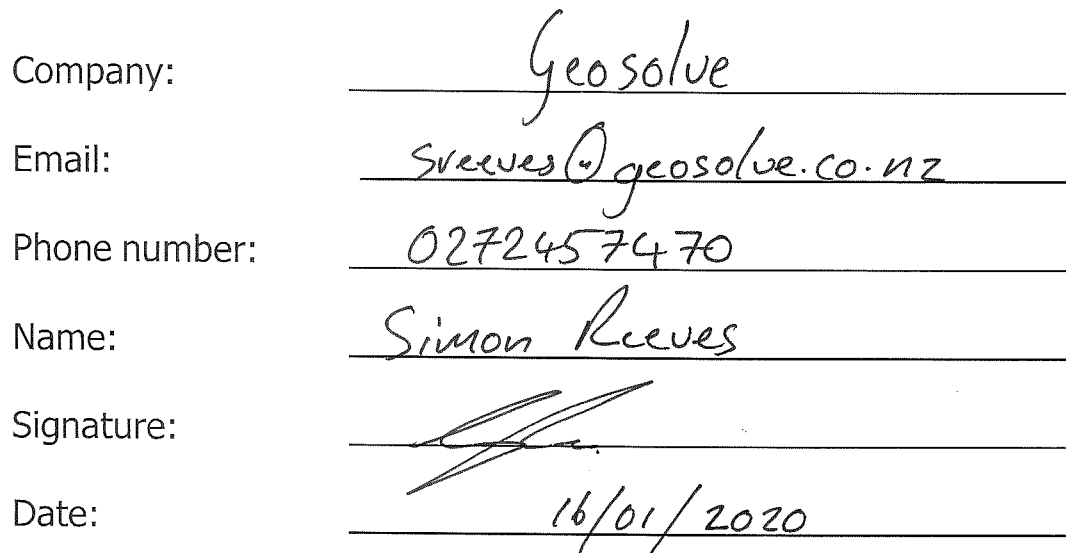 Company: Geosolve
Email: sreeves@geosolve.co.nz
Phone number: 0272457470
Name: Simon Reeves
Signature:
Date: 16/01/2020